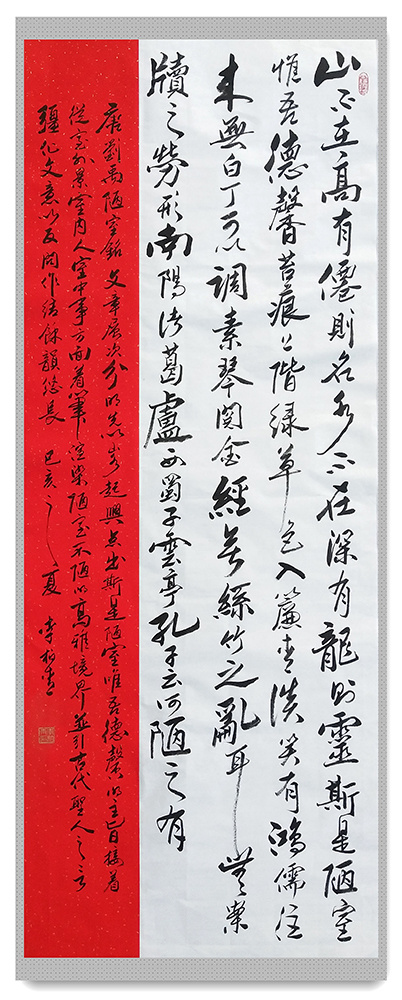 山不在高有僊則名水不在深有龍則靈斯是陋室
惟吾德馨苔痕上階绿草色入簾青談笑有鴻儒往
来無白丁可以調素琴閱金經無絲竹之亂耳無案
牘之勞形南陽诸葛廬西蜀子雲亭孔子云何陋之有
唐劉禹陋室銘文章層次分明先以山水起興点出斯是陋室唯吾德馨的主旨接着
從室外景室内人室中事方面着筆渲染陋室不陋的高雅境界並引古代聖人之言
強化文意以反問作结餘韻悠長 己亥之夏 李柏青